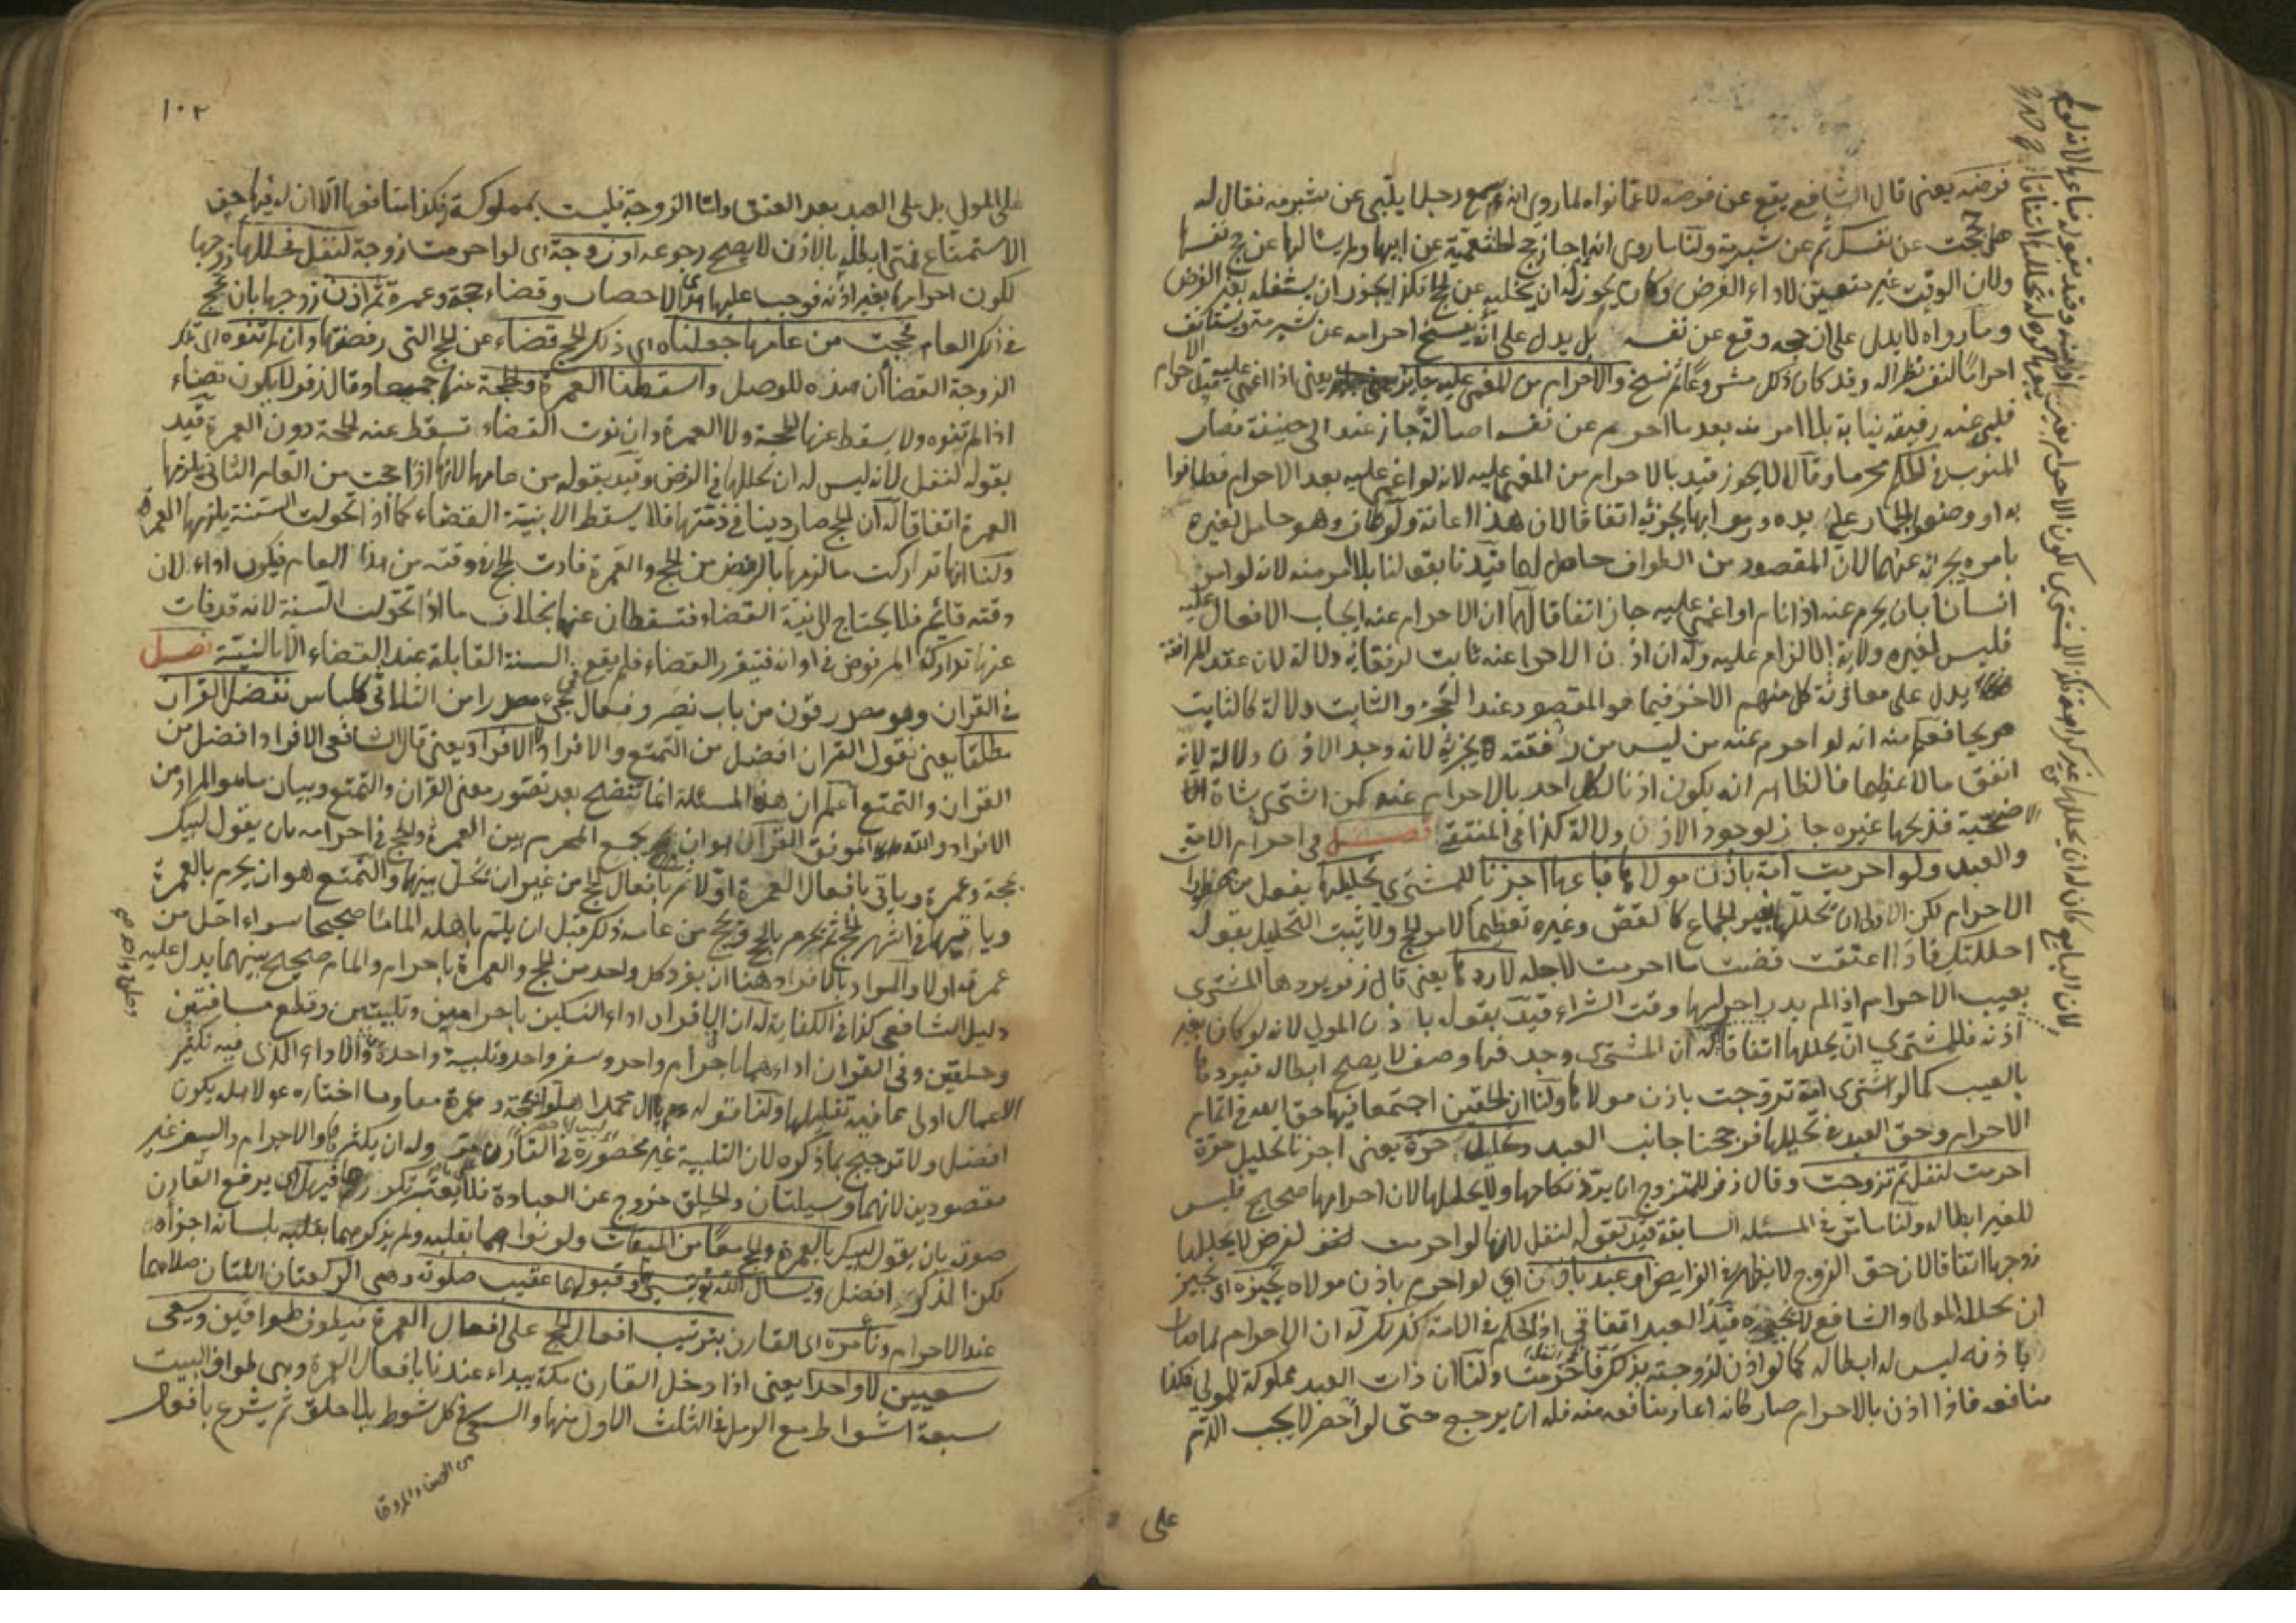 فرضه يعني قال الشافعي يقع عن فرضه لا عما نواه لما روي انه سمع رجلا يلبي عن شبرمة فقال له
حججت عن نفسك ثم عن شبرمة ولنا ما روي انه اجاز حج الخثعمية عن ابيها ولم يسألها عن حج نفسها
ولان الوقت غير متعين لاداء الفرض وكان يجوز له ان يخليه عن الحج فكذا يجوز ان يشغله بغير الفرض
وما رواه لا يدل على ان حجه وقع عن نفسه بل يدل على انه يفسخ احرامه عن شبرمة ويستأنف
احراما لنفسه نظرا له وقد كان ذلك مشروعا ثم نسخ والاحرام من المغمى عليه جائز يعني اذا اغمي عليه قبل الاحرام
فلبى عنه رفيقه نيابة بلا امر منه بعد ما احرم عن نفسه اصالة جاز عند ابي حنيفة فصار
المنوب في الحكم محرما وقالا لا يجوز قيد بالاحرام من المغمى عليه لانه لو اغمي عليه بعد الاحرام فطافوا
به او وضعوا الجمار على يده ورموا بها يجوز اتفاقا لان هذا اعانة ولو طاف وهو حامل لغيره
بامره يجزئه عنهما لان المقصود من الطواف حاصل لهما قيدنا بقولنا بلا امر منه لانه لو امر
انسانا بان يحرم عنه اذا نام او اغمي عليه جاز اتفاقا لهما ان الاحرام عنه ايجاب الافعال عليه
فليس لغيره ولاية الالزام عليه وله ان اذن الاحرام عنه ثابت لرفقائه دلالة لان عقد المرافقة
يدل على معاونة كل منهم الاخر فيما هو المقصود عند العجز والثابت دلالة كالثابت
صريحا فعلم منه انه لو احرم عنه من ليس من رفقته يجزئه لانه وجد الاذن دلالة لانه
انفق مالا عظيما فالظاهر انه يكون اذنا لكل احد بالاحرام عنه كمن اشترى شاة
الاضحية فذبحها غيره جاز لوجود الاذن دلالة كذا في المنتقى فصل في احرام الامة
والعبد ولو احرمت امة باذن مولاها فباعها اجزنا للمشتري تحليلها بفعل من محظورات
الاحرام لكن الاولى ان تحللها بغير الجماع كالقص وغيره تعظيما لامر الحج ولا يثبت التحليل بقوله
احللتك فاذا اعتقت قضت ما احرمت لاجله لا ردها يعني قال زفر يردها المشتري
بعيب الاحرام اذا لم يدر احرامها وقت الشراء قيد بقوله باذن المولى لانه لو كان بغير
اذنه فللمشتري ان يحللها اتفاقا له ان المشتري وجد فيها وصفا لا يصح ابطاله فيردها
بالعيب كما لو اشترى امة تزوجت باذن مولاها ولنا ان الحقين اجتمعا فيها حق الله في اتمام
الاحرام وحق العبد في تحليلها فرجحنا جانب العبد وتحليل حرة يعني اجزنا تحليل حرة
احرمت لنفل ثم تزوجت وقال زفر للمتزوج ان يرد نكاحها ولا يحللها لان احرامها صحيح فليس
للغير ابطاله ولنا ما مر في المسئلة السابقة قيد بقوله لنفل لانها لو احرمت لفرض لا يحللها
زوجها اتفاقا لان حق الزوج لا يظهر في الفرايض او عبد باذن اي لو احرم باذن مولاه نجيزه اي نجيز
ان يحلله المولى والشافعي لا يجيزه قيد العبد اتفاقي اذ الحكم في الامة كذلك له ان الاحرام لما صار
باذنه ليس له ابطاله كما لو اذن لزوجته بذلك فاحرمت ولنا ان ذات العبد مملوكة للمولى فكذا
منافعه فاذا اذن بالاحرام صار كانه اعار منافعه منه فله ان يرجع حتى لو احصر لا يجب الدم
على
١٠٢
على المولى بل على العبد بعد العتق واما الزوجة فليست بمملوكة فكذا منافعها الا ان له فيها حق
الاستمتاع فمتى ابطله بالاذن لا يصح رجوعه او زوجة اي لو احرمت زوجة لنفل فحللها زوجها
لكون احرامها بغير اذنه فوجب عليها دم الاحصار وقضاء حجة وعمرة ثم اذن زوجها بان تحج
في ذلك العام فحجت من عامها جعلناه اي ذلك الحج قضاء عن الحج التي رفضتها وان لم تنوه اي تلك
الزوجة القضاء ان هذه للوصل واسقطنا العمرة والحجة عنها جميعا وقال زفر لا يكون قضاء
اذا لم تنوه ولا يسقط عنها الحجة ولا العمرة وان نوت القضاء تسقط عنه الحجة دون العمرة قيد
بقوله لنفل لانه ليس له ان يحللها في الفرض وقيد بقوله من عامها لانها اذا حجت من العام الثاني يلزمها
العمرة اتفاقا له ان الحج صار دينا في ذمتها فلا يسقط الا بنية القضاء كما اذا تحولت السنة يلزمها العمرة
ولنا انها تداركت ما لزمها بالرفض من الحج والعمرة فادت الحج في وقته من هذا العام فيكون اداء لان
وقته قائم فلا يحتاج الى نية القضاء فتسقطان عنها بخلاف ما اذا تحولت السنة لانه قد فات
عنها تدارك المرفوض في اوانه فتقرر القضاء فلم يقع في السنة القابلة عند القضاء الا بالنية فصل
في القران وهو مصدر قرن من باب نصر وفعال يجيء مصدرا من الثلاثي كلباس نفضل القران
مطلقا يعني نقول القران افضل من التمتع والافراد لا الافراد يعني قال الشافعي الافراد افضل من
القران والتمتع اعلم ان هذه المسئلة انما تتضح بعد تصور معنى القران والتمتع وبيان ما هو المراد من
الافراد والله الموفق القران هو ان يجمع المحرم بين العمرة والحج في احرامه بان يقول لبيك
بحجة وعمرة وياتي بافعال العمرة اولا ثم بافعال الحج من غير ان يحل بينهما والتمتع هو ان يحرم بالعمرة
وياتيها في اشهر الحج ثم يحرم بالحج ويحج من عامه ذلك قبل ان يلم باهله الماما صحيحا سواء احل من
عمرته اولا والمراد بالافراد هنا ان يفرد كل واحد من الحج والعمرة باحرام والمام صحيح بينهما يدل عليه
دليل الشافعي كذا في الكفاية له ان الافراد اداء النسكين باحرامين وتلبيتين وقطع مسافتين
وحلقين وفي القران اداءهما باحرام واحد وسفر واحد وتلبية واحدة والاداء الذي فيه تكثير
الاعمال اولى مما فيه تقليلها ولنا قوله يا آل محمد اهلوا بحجة وعمرة معا وما اختاره عم لاهله يكون
افضل ولا ترجيح بما ذكره لان التلبية غير محصورة في القارن وله ان يكثرها والاحرام والسفر غير
مقصودين لانهما وسيلتان والحلق خروج عن العبادة فلا يعتبر تكررها فيهل اي يرفع القارن
صوته بان يقول لبيك بالعمرة والحج معا من الميقات ولو نواهما بقلبه ولم يذكرهما بلسانه اجزأه
لكن الذكر افضل ويسأل الله تيسيرهما وقبولهما عقيب صلوته وهي الركعتان اللتان صلاهما
عند الاحرام ونأمره اي القارن بترتيب افعال الحج على افعال العمرة فيطوف طوافين ويسعى
سعيين لا واحدا يعني اذا دخل القارن مكة يبداء عندنا بافعال العمرة وهي طواف البيت
سبعة اشواط مع الرمل في الثلث الاول منها والسعي في كل شوط بلا حلق ثم يشرع بافعال
بين الصفا والمروة